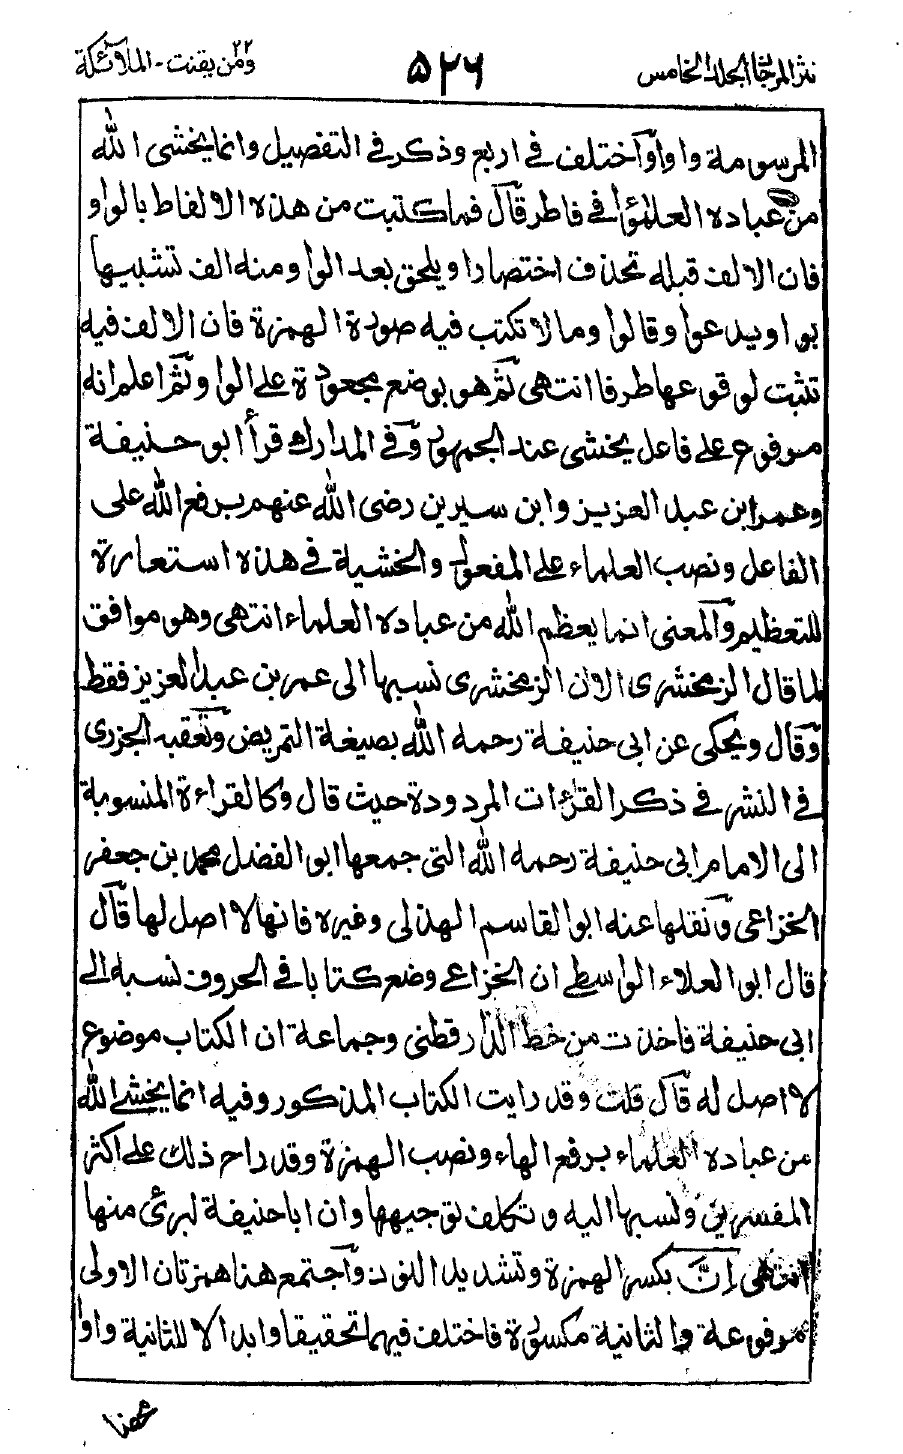 نثر المرجان الجلد الخامس
٥٢٦
ومن يقنت ٢٢ - الملآئكة
المرسومة واوا وآختلف فى اربع وذكر فى التفصيل وانما يخشى الله
من عباده العلمٰؤا فى فاطر قال فما كتبت من هذه الالفاظ بالواو
فان الالف قبله تحذف اختصارا ويلحق بعد الواو منه الف تشبيها
بواو يدعوا وقالوا وما لا تكتب فيه صورة الهمزة فان الالف فيه
تثبت لوقوعها طرفا انتهى ثم هو بوضع مجعودة على الواو ثم اعلم انه
مرفوع على فاعل يخشى عند الجمهور وفى المدارك قرأ ابو حنيفة
وعمر ابن عبد العزيز وابن سيرين رضى الله عنهم برفع الله على
الفاعل ونصب العلماء على المفعول والخشية فى هذه استعارة
للتعظيم والمعنى انما يعظم الله من عباده العلماء انتهى وهو موافق
لما قال الزمخشرى الا ان الزمخشرى نسبها الى عمر بن عبد العزيز فقط
وقال ويحكى عن ابى حنيفة رحمه الله بصيغة التمريض وتعقبه الجزرى
فى النشر فى ذكر القرٰءات المردودة حيث قال وكالقراءة المنسوبة
الى الامام ابى حنيفة رحمه الله التى جمعها ابو الفضل محمد بن جعفر
الخزاعى ونقلها عنه ابو القاسم الهذلى وغيره فانها لا اصل لها قال
قال ابو العلاء الواسطى ان الخزاعى وضع كتابا فى الحروف نسبه الى
ابى حنيفة فاخذت من خط الدارقطنى وجماعة ان الكتاب موضوع
لا اصل له قال قلت وقد رايت الكتاب المذكور وفيه انما يخشى الله
من عباده العلماء برفع الهاء ونصب الهمزة وقد راح ذلك على اكثر
المفسرين ونسبها اليه وتكلف توجيهها وان ابا حنيفة لبرئ منها
انتهى اِنَّ بكسر الهمزة وتشديد النون وآجتمع هنا همزتان الاولى
مرفوعة والثانية مكسورة فاختلف فيهما تحقيقا وابدالا للثانية واوا